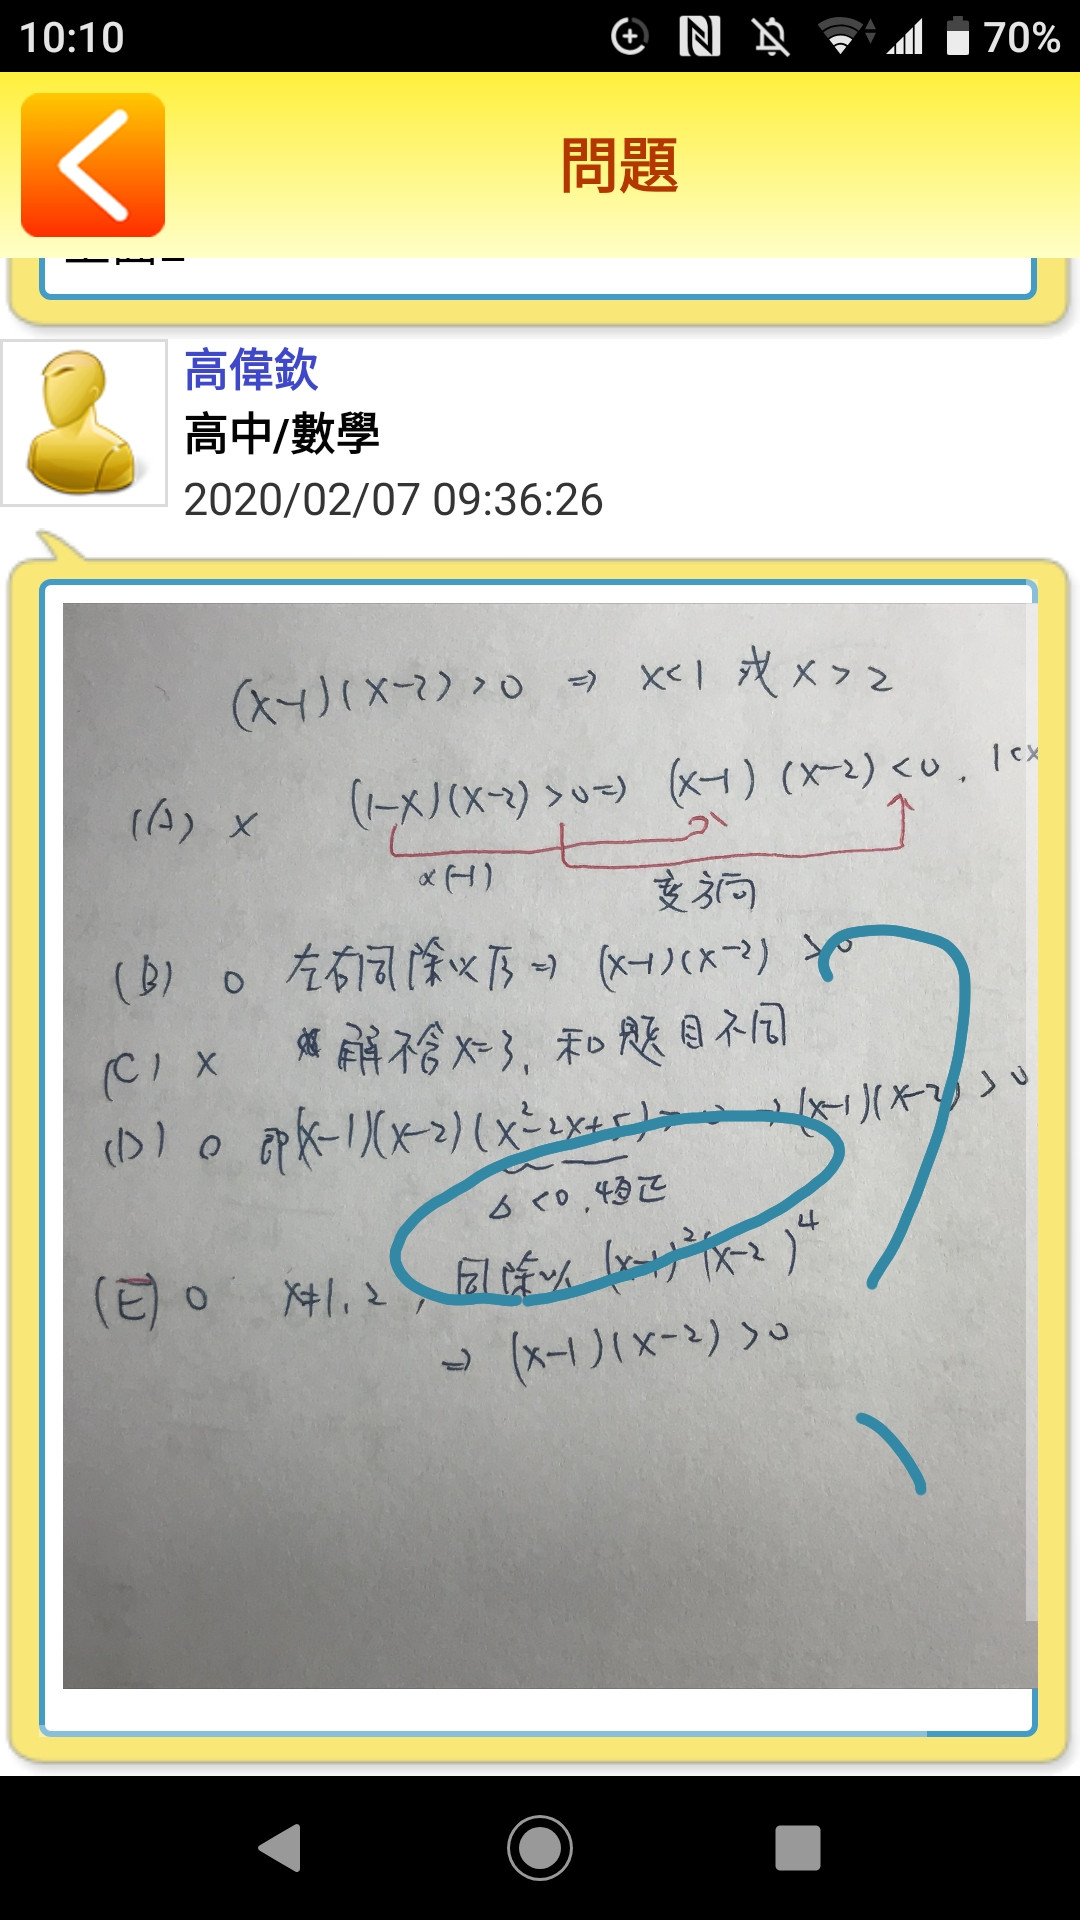 10:10
70%
問題
高偉欽
高中/數學
2020/02/07 09:36:26
(x-1)(x-2)>0 ⇒ x<1 或 x>2
(A) x (1-x)(x-2)>0⇒ (x-1)(x-2)<0. 1<x
x(-1) 變方向
(B) 0 左右同除以√3 ⇒ (x-1)(x-2)>0
(C) x 解不含x=3, 和題目不同
(D) 0 即(x-1)(x-2)(x²-2x+5)>0 ⇒ (x-1)(x-2)>0
△<0.恆正
(E) 0 x≠1.2, 同除以 (x-1)²(x-2)⁴
⇒ (x-1)(x-2)>0